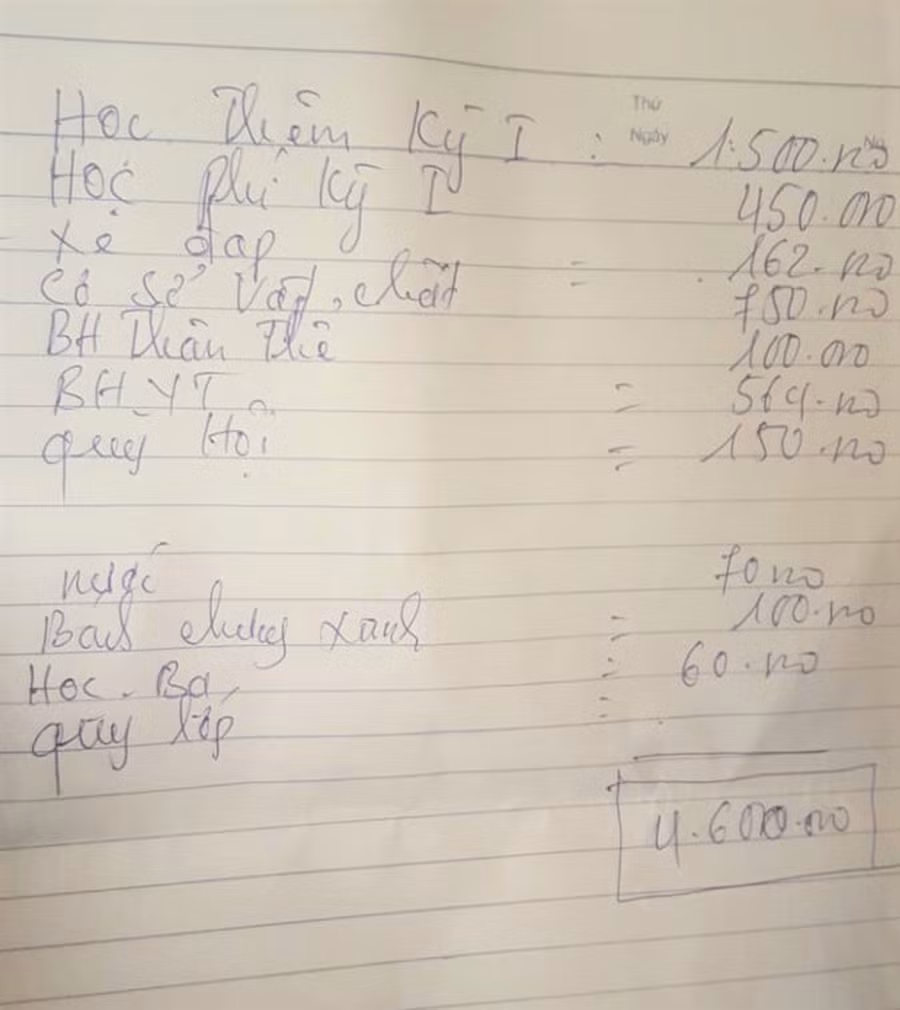 Thứ
Ngày
Học Thêm Kỳ I : 1.500.000
Học phí Kỳ I 450.000
Xe đạp 162.000
Cơ sở Vật chất = 750.000
BH Thân Thể 100.000
BH YT = 564.000
quỹ Hội = 150.000
nước 70 000
chưng xanh = 100.000
Học Bạ : 60.000
quỹ lớp :
4.600.000